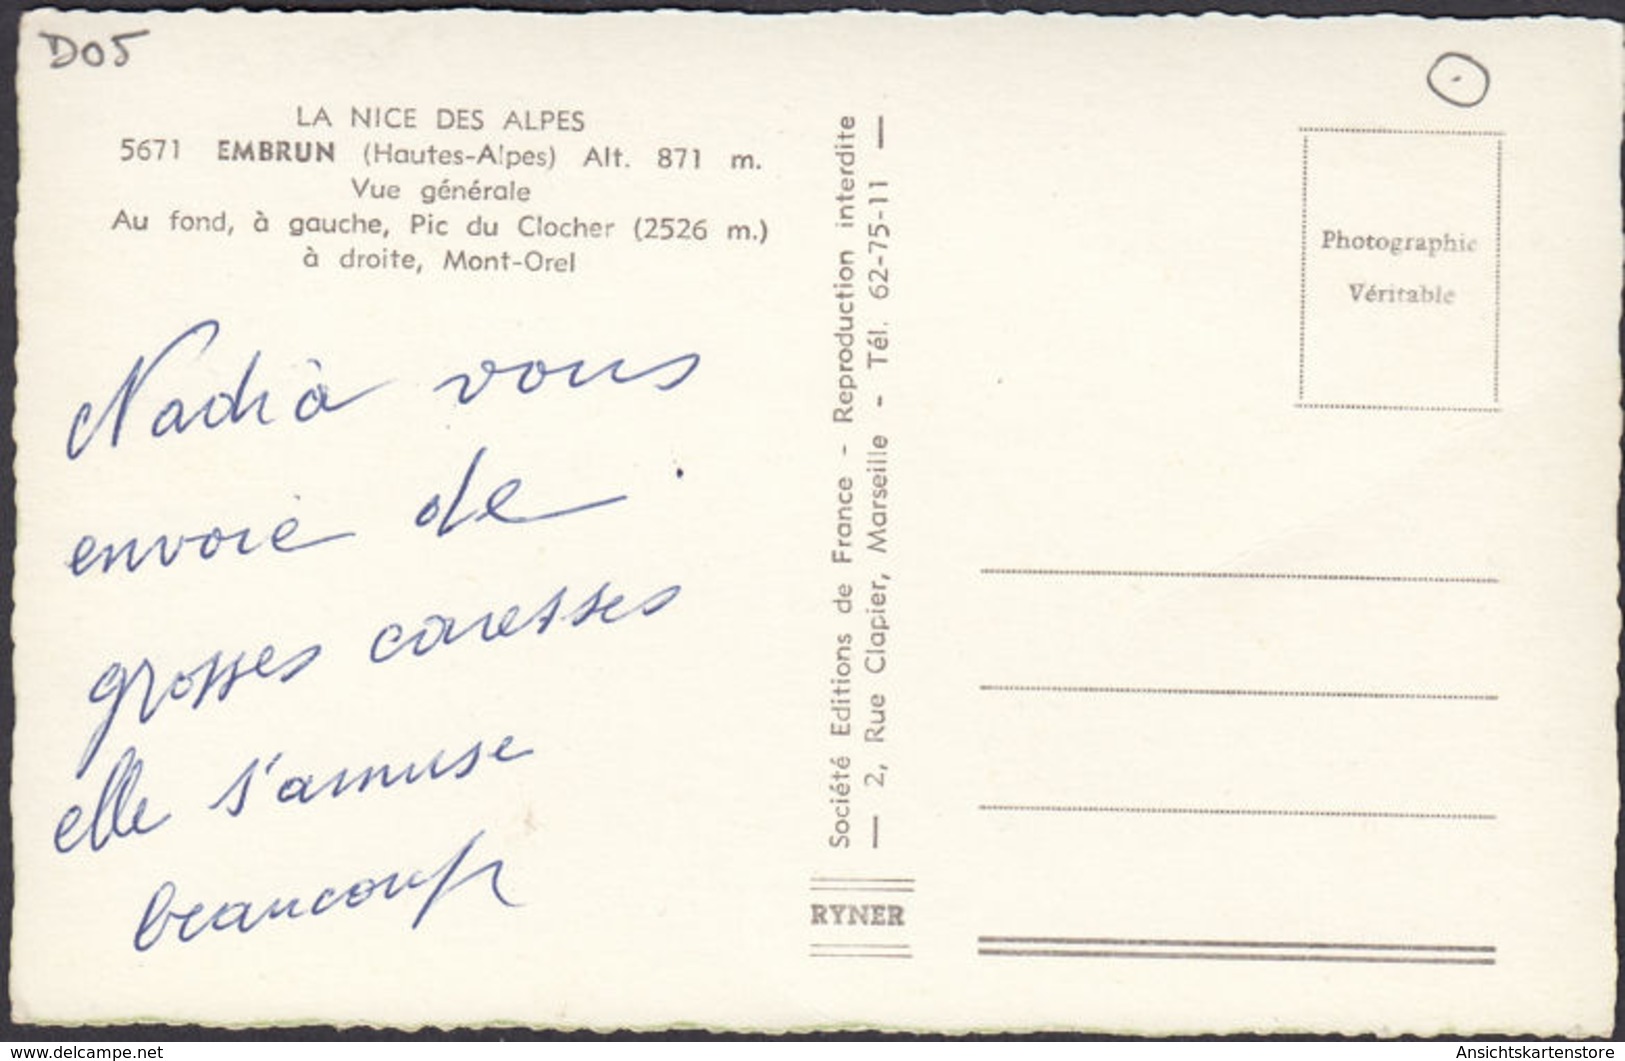 D05
LA NICE DES ALPES
5671 EMBRUN (Hautes-Alpes) Alt. 871 m.
Vue générale
Au fond, à gauche, Pic du Clocher (2526 m.)
à droite, Mont-Orel
Nadia vous
envoie de
grosses caresses
elle s'amuse
beaucoup
Société Editions de France - Reproduction interdite
— 2, Rue Clapier, Marseille - Tél. 62-75-11 —
RYNER
Photographie
Véritable
delcampe.net
Ansichtskartenstore